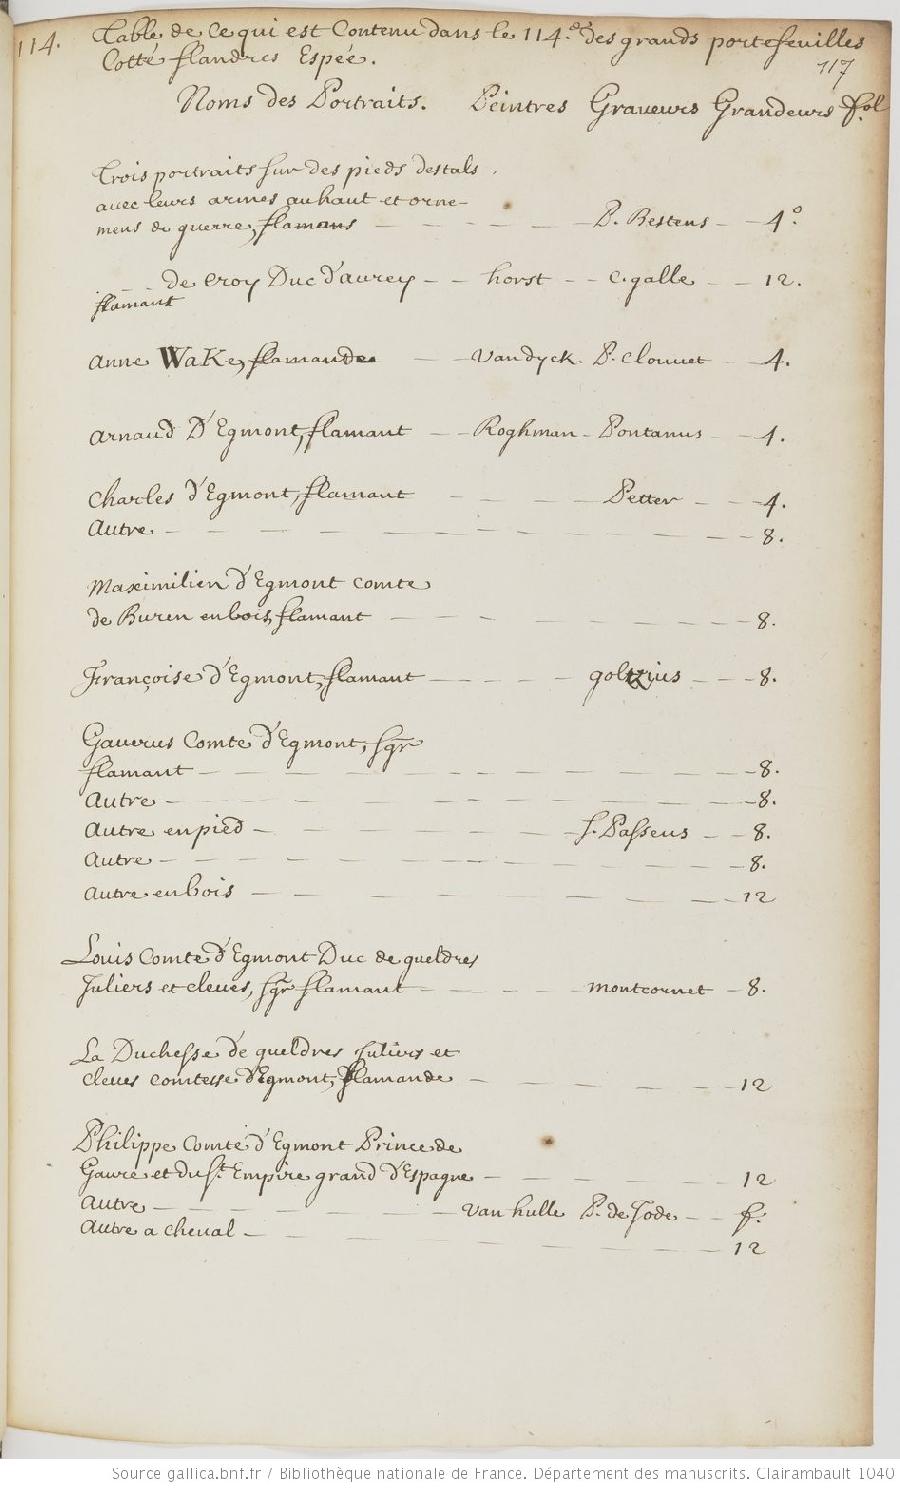 114. Table de ce qui est Contenu dans le 114.e des grands portefeuilles
Cotté flandres Espée.
117
Noms des Portraits. Peintres Graveurs Grandeurs fol
Trois portraits sur des pieds destals
avec leurs armes au haut et orne-
mens de guerre, flamans — — — — — P. Bestens — 4°.
. . . de croy Duc d'aurey — — horst — — C. galle — — 12.
flamant
anne WaKe, flamande — — Vandyck. P. Clouuet — 4.
arnaud D'Egmont, flamant — — Roghman — Pontanus — 4.
Charles d'Egmont, flamant — — — Petter — — 4.
Autre. — — — — — — — — 8.
Maximilien d'Egmont comte
de Buren en bois, flamant — — — — — 8.
Françoise d'Egmont, flamant — — — — goltzius — — 8.
Gaurus Comte d'Egmont, sgr
flamant — — — — — — — — 8.
Autre — — — — — — — — 8.
Autre en pied — — — — — — f. Passeus — — 8.
Autre — — — — — — — — 8.
Autre en bois — — — — — — — 12
Louis Comte d'Egmont Duc de gueldres
Juliers et cleves, sgr flamant — — — — montcornet — 8.
La Duchesse de gueldres Juliers et
cleves comtesse d'Egmont, flamande — — — — — 12
Philippe Comte d'Egmont Prince de
Gavre et du St. Empire grand d'Espagne — — — — — 12
Autre — — — — — — van hulle P. de Jode — — f.
Autre a cheval — — — — — — — 12
Source gallica.bnf.fr / Bibliothèque nationale de France. Département des manuscrits. Clairambault 1040